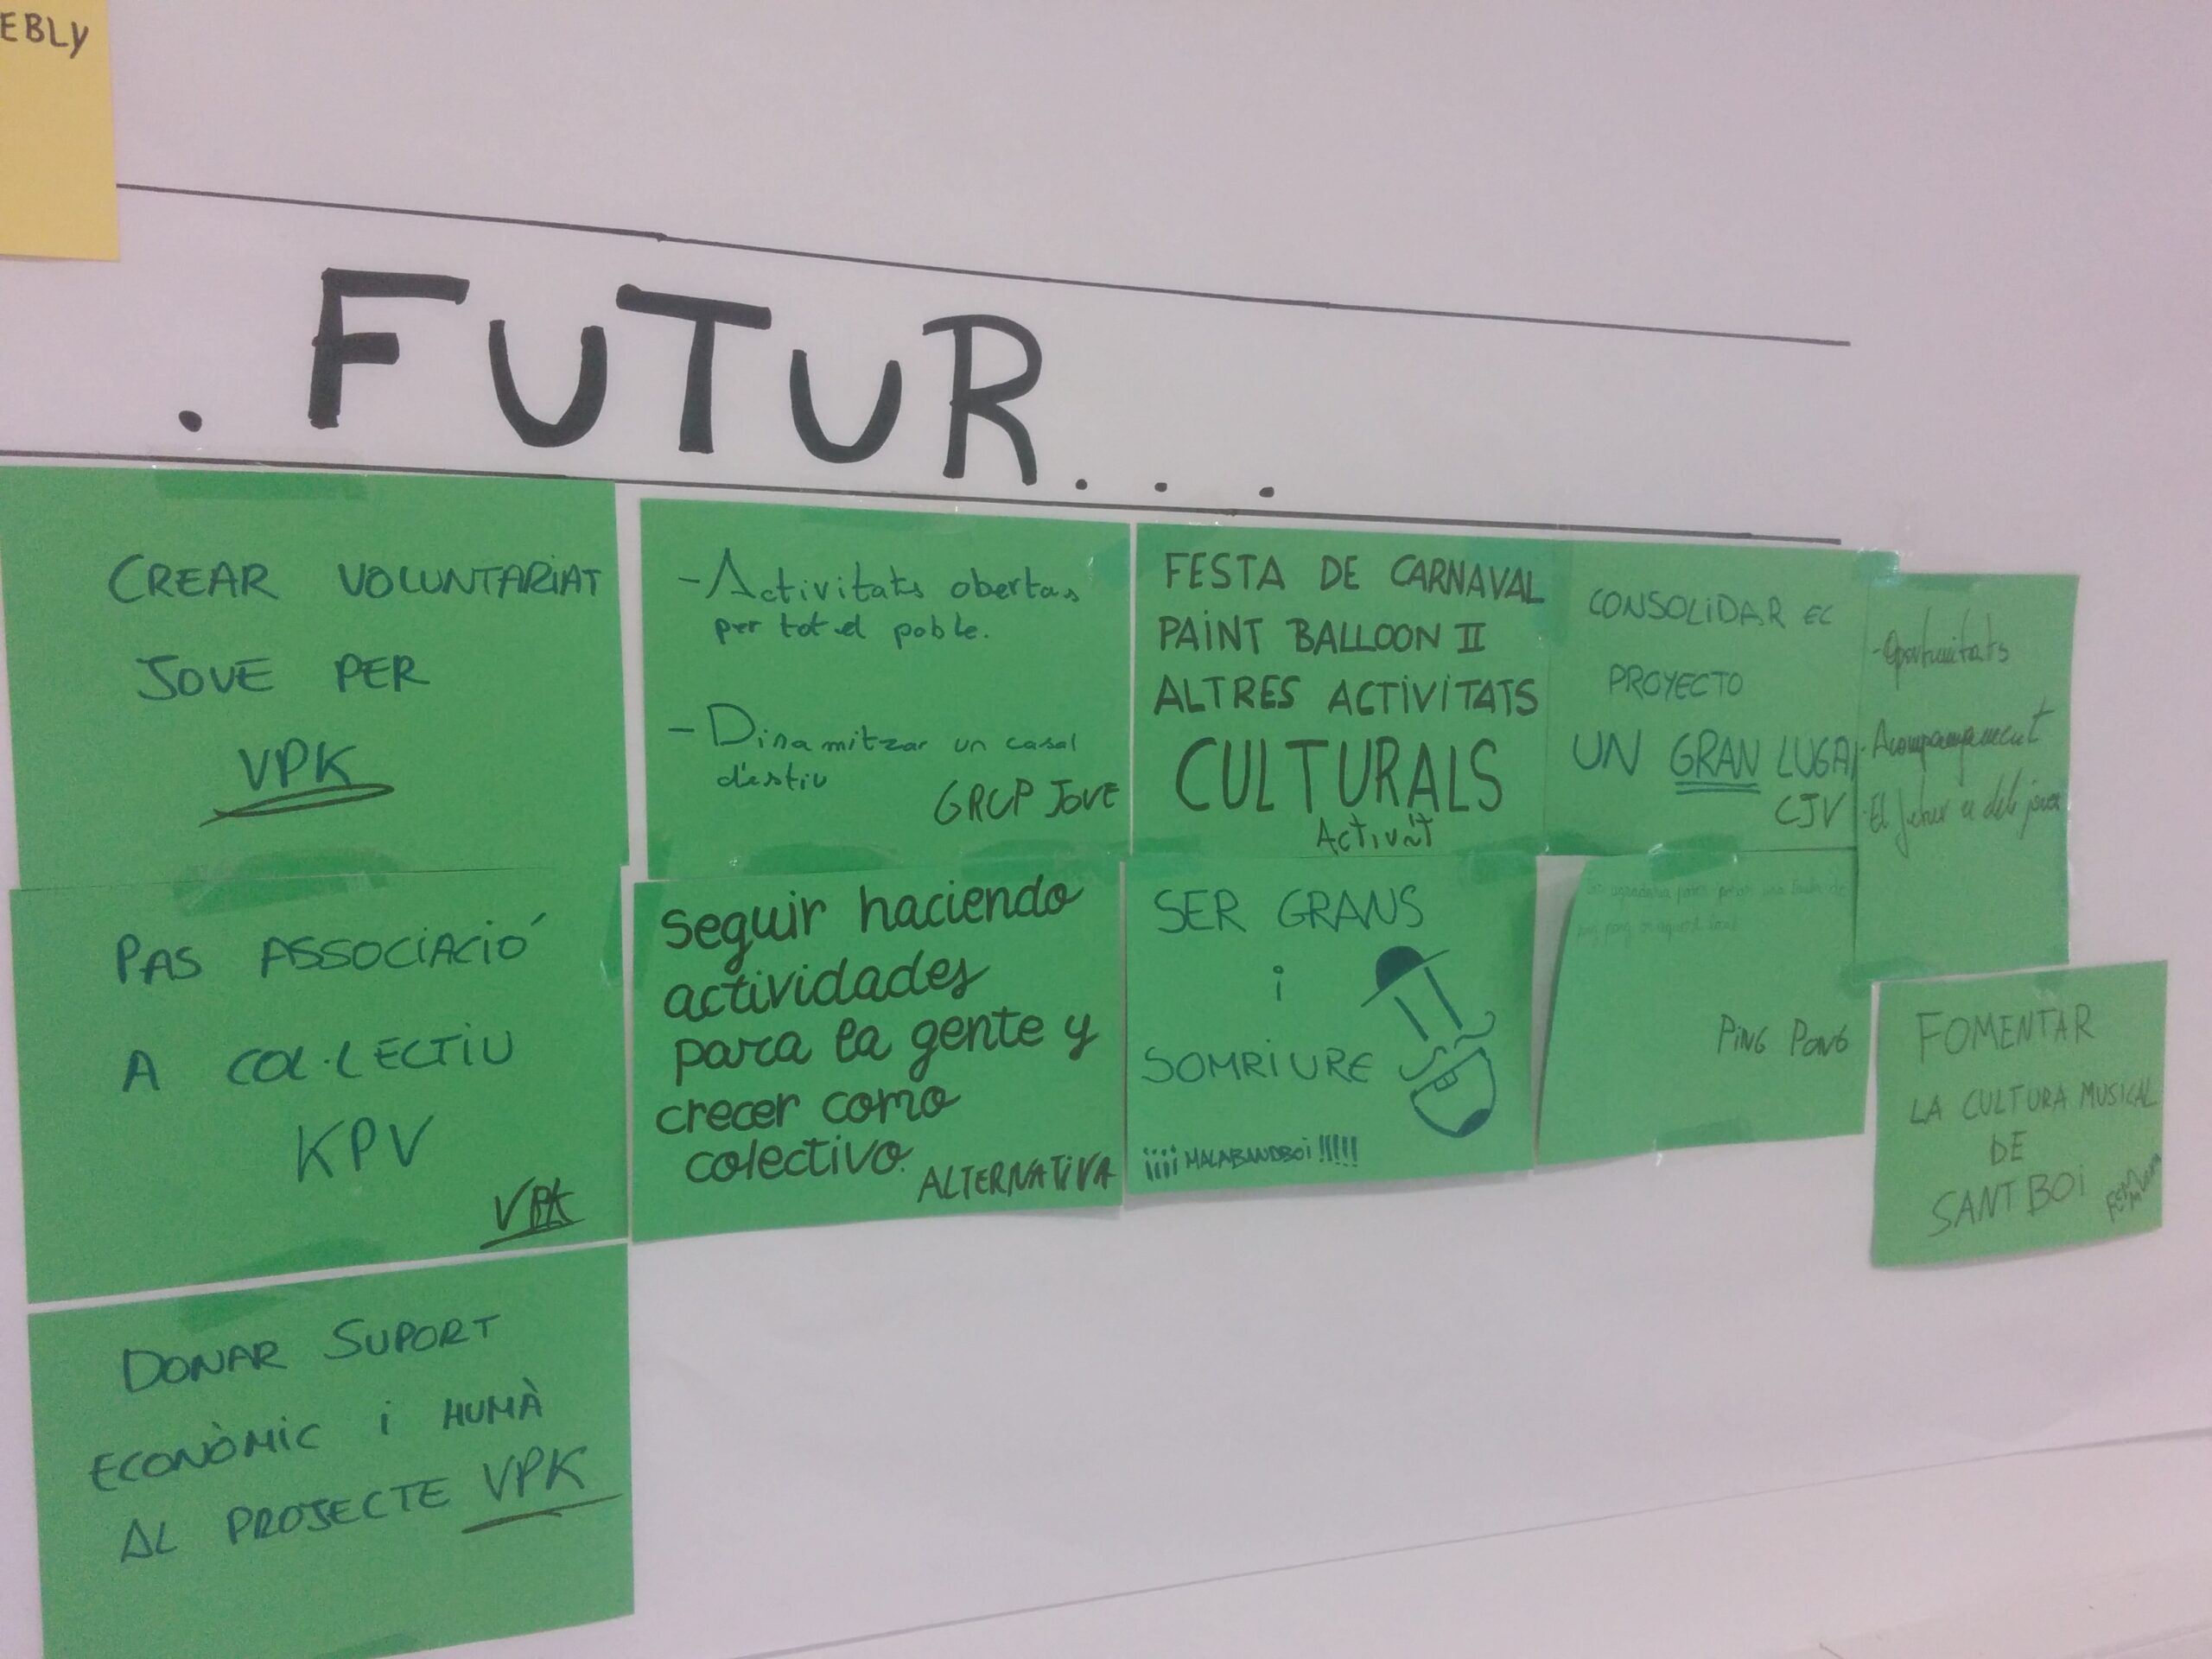 EBLY
. FUTUR...
CREAR VOLUNTARIAT
JOVE PER
VPK
- Activitats obertas
per tot el poble.
- Dinamitzar un casal
d'estiu
GRUP JOVE
FESTA DE CARNAVAL
PAINT BALLOON II
ALTRES ACTIVITATS
CULTURALS
Activa't
CONSOLIDAR EL
PROYECTO
UN GRAN LUGAR
CJV
- Oportunitats
- Acompanyament
- El futur és dels joves
PAS ASSOCIACIÓ
A COL·LECTIU
KPV
VPK
Seguir haciendo
actividades
para la gente y
crecer como
colectivo.
ALTERNATIVA
SER GRANS
i
SOMRIURE
¡¡¡¡ MALABANDBOI !!!!!
una taula de
ping pong
PING PONG
FOMENTAR
LA CULTURA MUSICAL
DE
SANT BOI
DONAR SUPORT
ECONÒMIC i HUMÀ
AL PROJECTE VPK